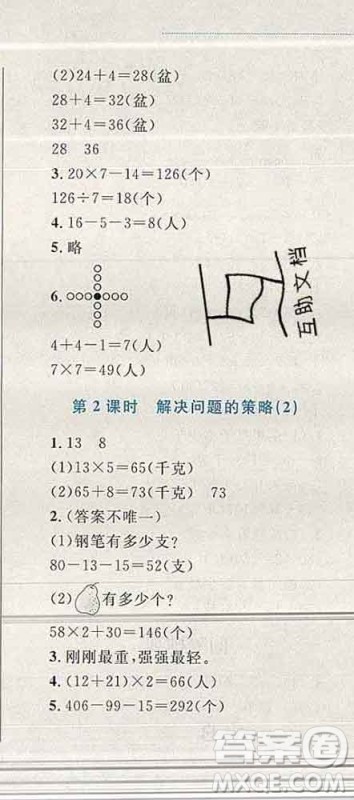 (2)24+4=28(盆)
28+4=32(盆)
32+4=36(盆)
28 36
3. 20×7-14=126(个)
126÷7=18(个)
4. 16-5-3=8(人)
5. 略
6.
4+4-1=7(人)
7×7=49(人)
互助文档
第2课时 解决问题的策略(2)
1. 13 8
(1)13×5=65(千克)
(2)65+8=73(千克) 73
2. (答案不唯一)
(1)钢笔有多少支?
80-13-15=52(支)
(2) 有多少个?
58×2+30=146(个)
3. 刚刚最重,强强最轻。
4. (12+21)×2=66(人)
5. 406-99-15=292(个)
答案圈
MXQE.COM